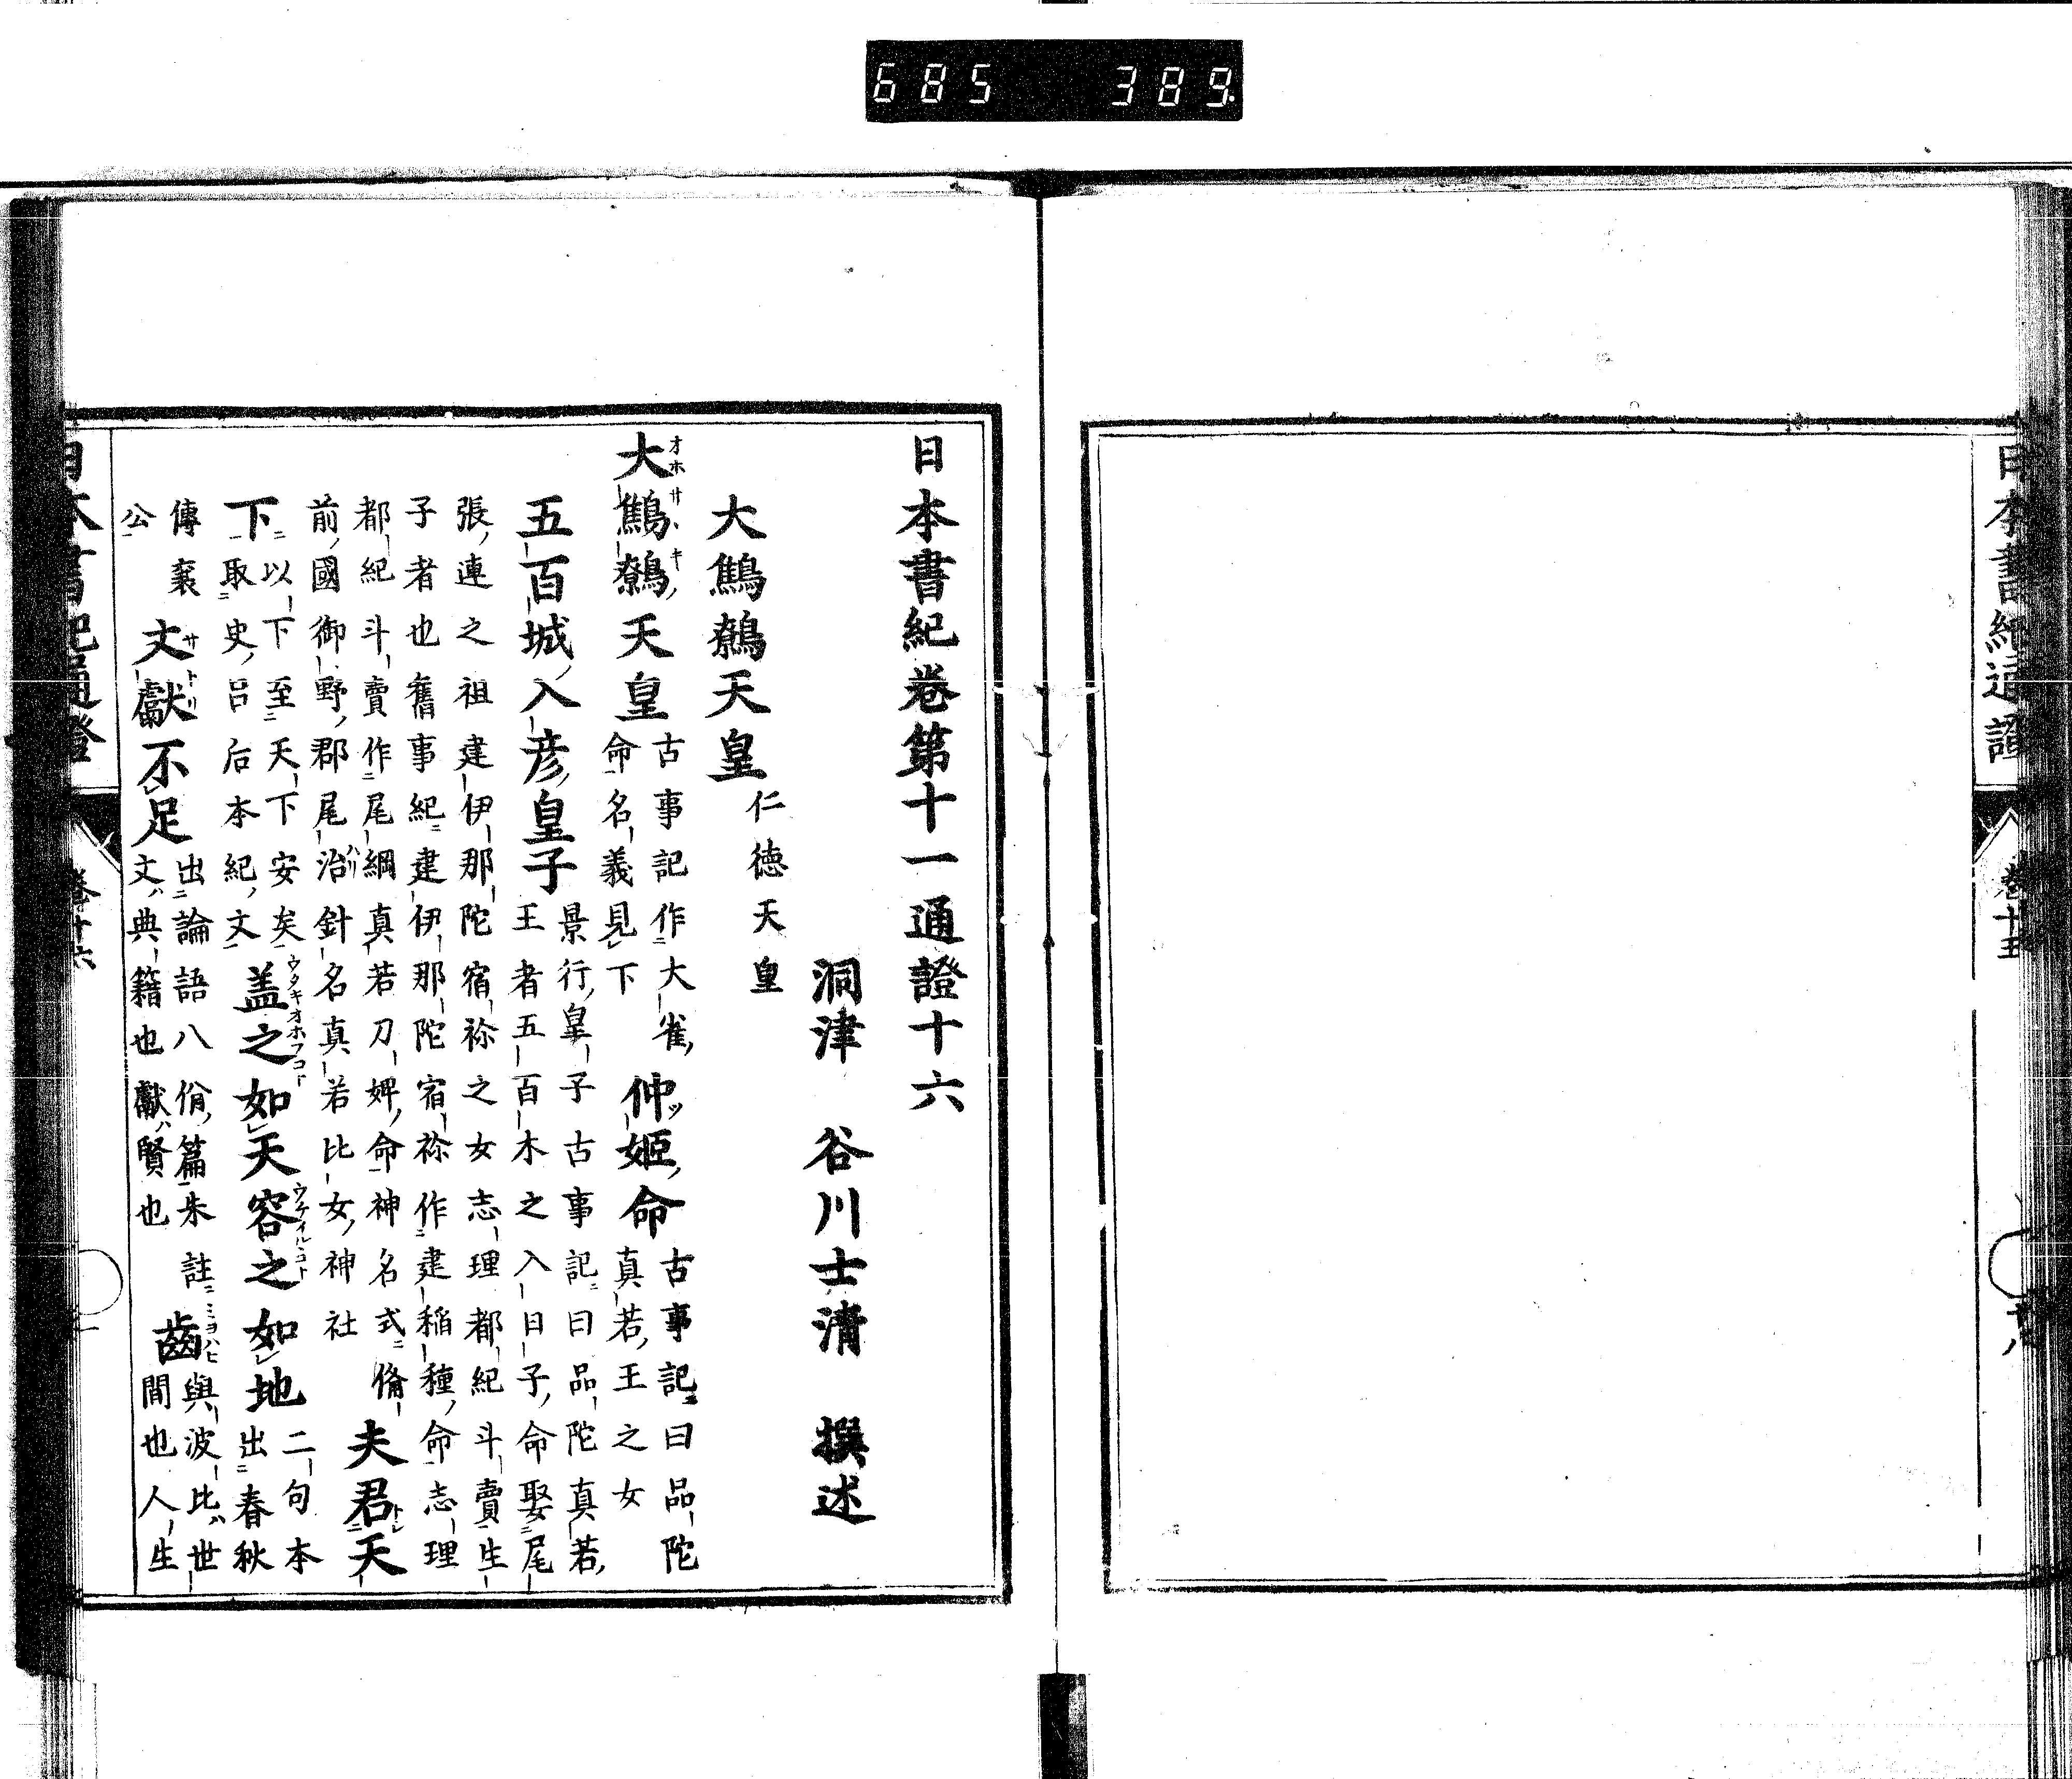 685 389
日本書紀通證
卷十五
日本書紀卷第十一通證十六
洞津 谷川士清 撰述
大鷦鷯天皇 仁徳天皇
大鷦鷯天皇 古事記作大雀
命名義見下 仲姫命 古事記曰品陀
真若王之女
五百城入彦皇子 景行皇子古事記曰品陀真若
王者五百木之入日子命娶尾
張連之祖建伊那陀宿祢之女志理都紀斗賣生
子者也舊事紀建伊那陀宿祢作建稲種命志理
都紀斗賣作尾綱真若刀婢命神名式
前國御野郡尾治針名真若比女神社 夫君天
下 以下至天下安矣
取史呂后本紀文 盖之如天容之如地 二句本
出春秋
傳襄
公 文獻不足 出論語八佾篇朱註
文典籍也獻賢也 齒 與波比世
間也人生
オホサヽキ
ウタキオホフコト
ウケイルコト
サトリ
ミヨハヒ
日本書紀通證
卷十六